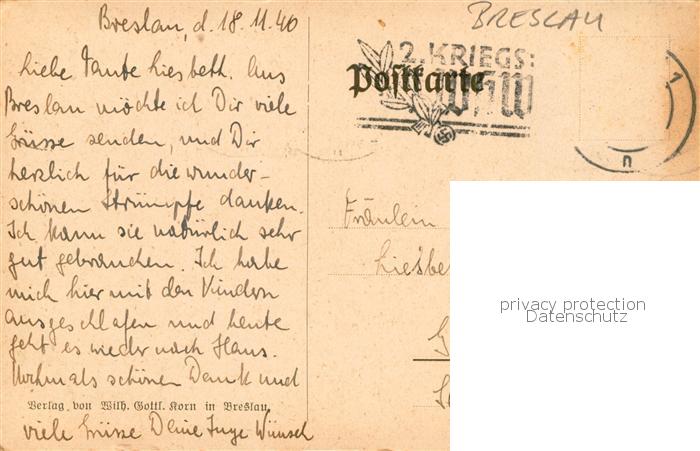 Breslau, d. 18.11.40
Liebe Tante Liesbeth. Aus
Breslau möchte ich Dir viele
Grüsse senden, und Dir
herzlich für die wunder-
schönen Strümpfe danken.
Ich kann sie natürlich sehr
gut gebrauchen. Ich habe
mich hier mit den Kindern
ausgeschlafen und heute
geht es wieder nach Haus.
Nochmals schönen Dank und
Verlag von Wilh. Gottl. Korn in Breslau.
viele Grüsse Deine Inge Wünsch
BRESLAU
2. KRIEGS:
WHW
Postkarte
n
Fräulein
Liesbe
G
privacy protection
Datenschutz